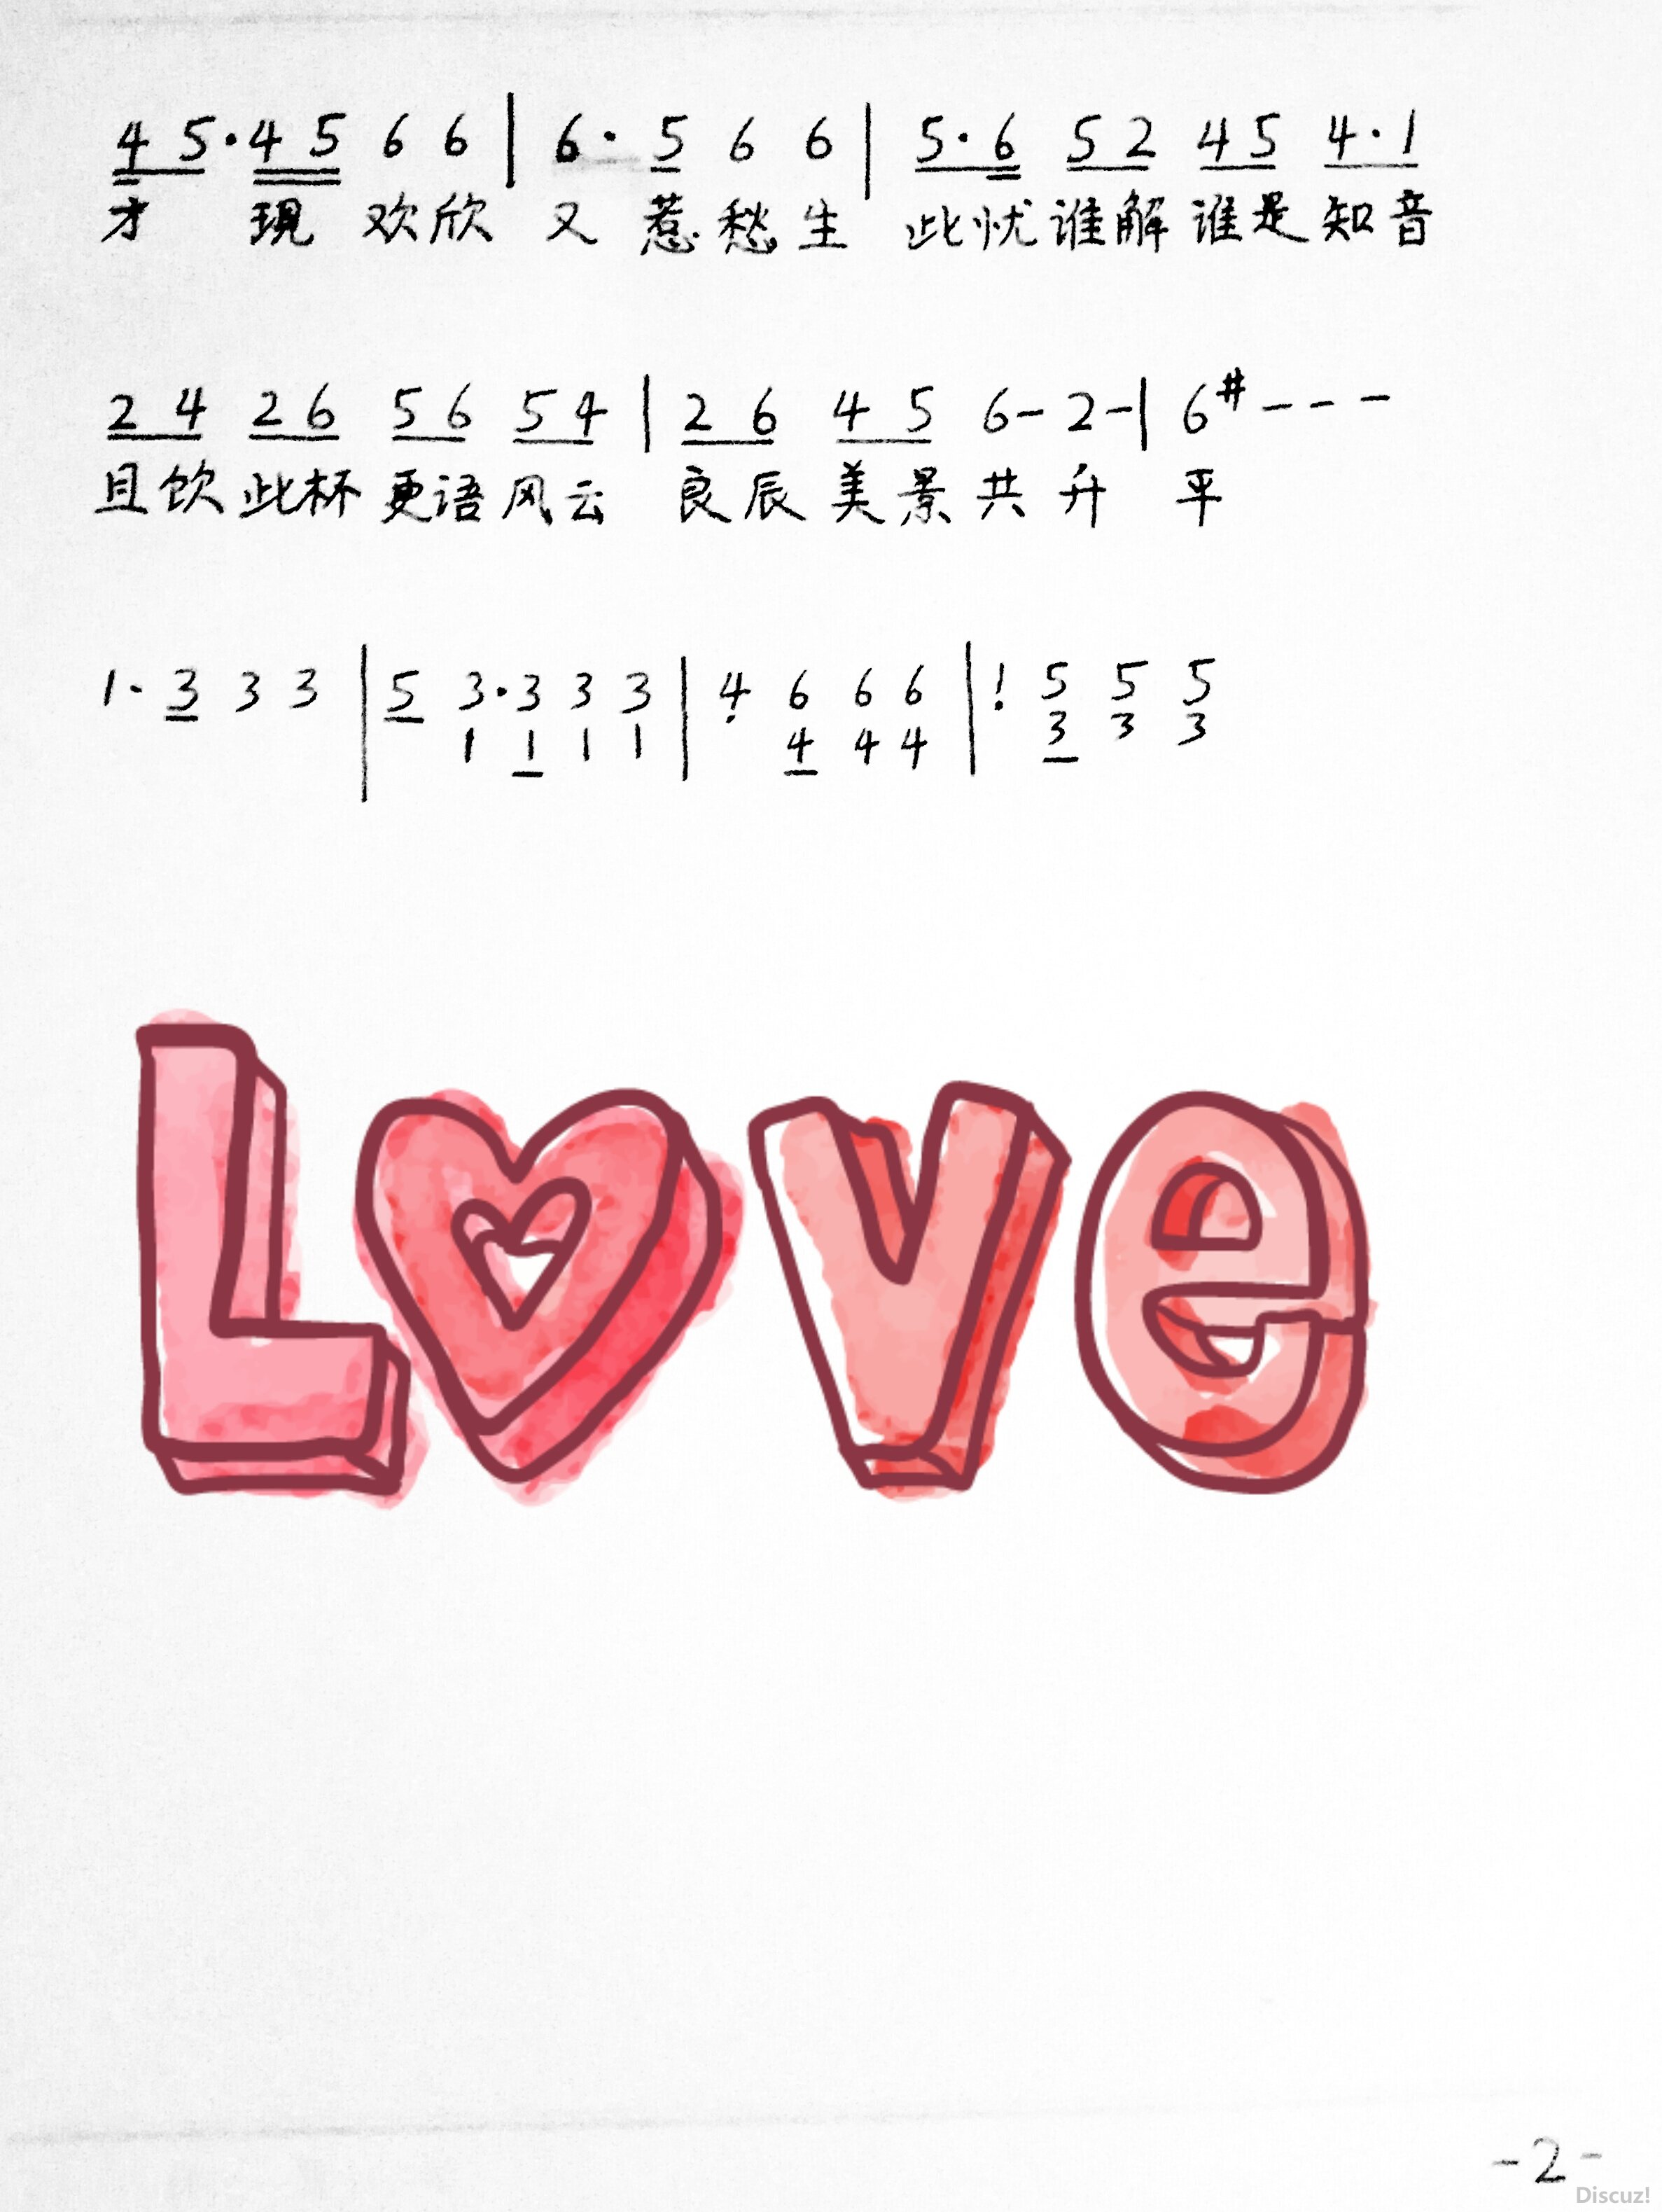 4 5·4 5 6 6 | 6· 5 6 6 | 5·6 5 2 4 5 4·1
才 现 欢欣 又 惹愁生 此忧谁解谁是知音
2 4 2 6 5 6 5 4 | 2 6 4 5 6- 2-| 6# - - -
且饮此杯更语风云 良辰美景共升 平
1· 3 3 3 | 5 3·3 3 3 | 4 6 6 6 | 1 5 5 5
1 1 1 1 4 4 4 3 3 3
Love
-2-
Discuz!